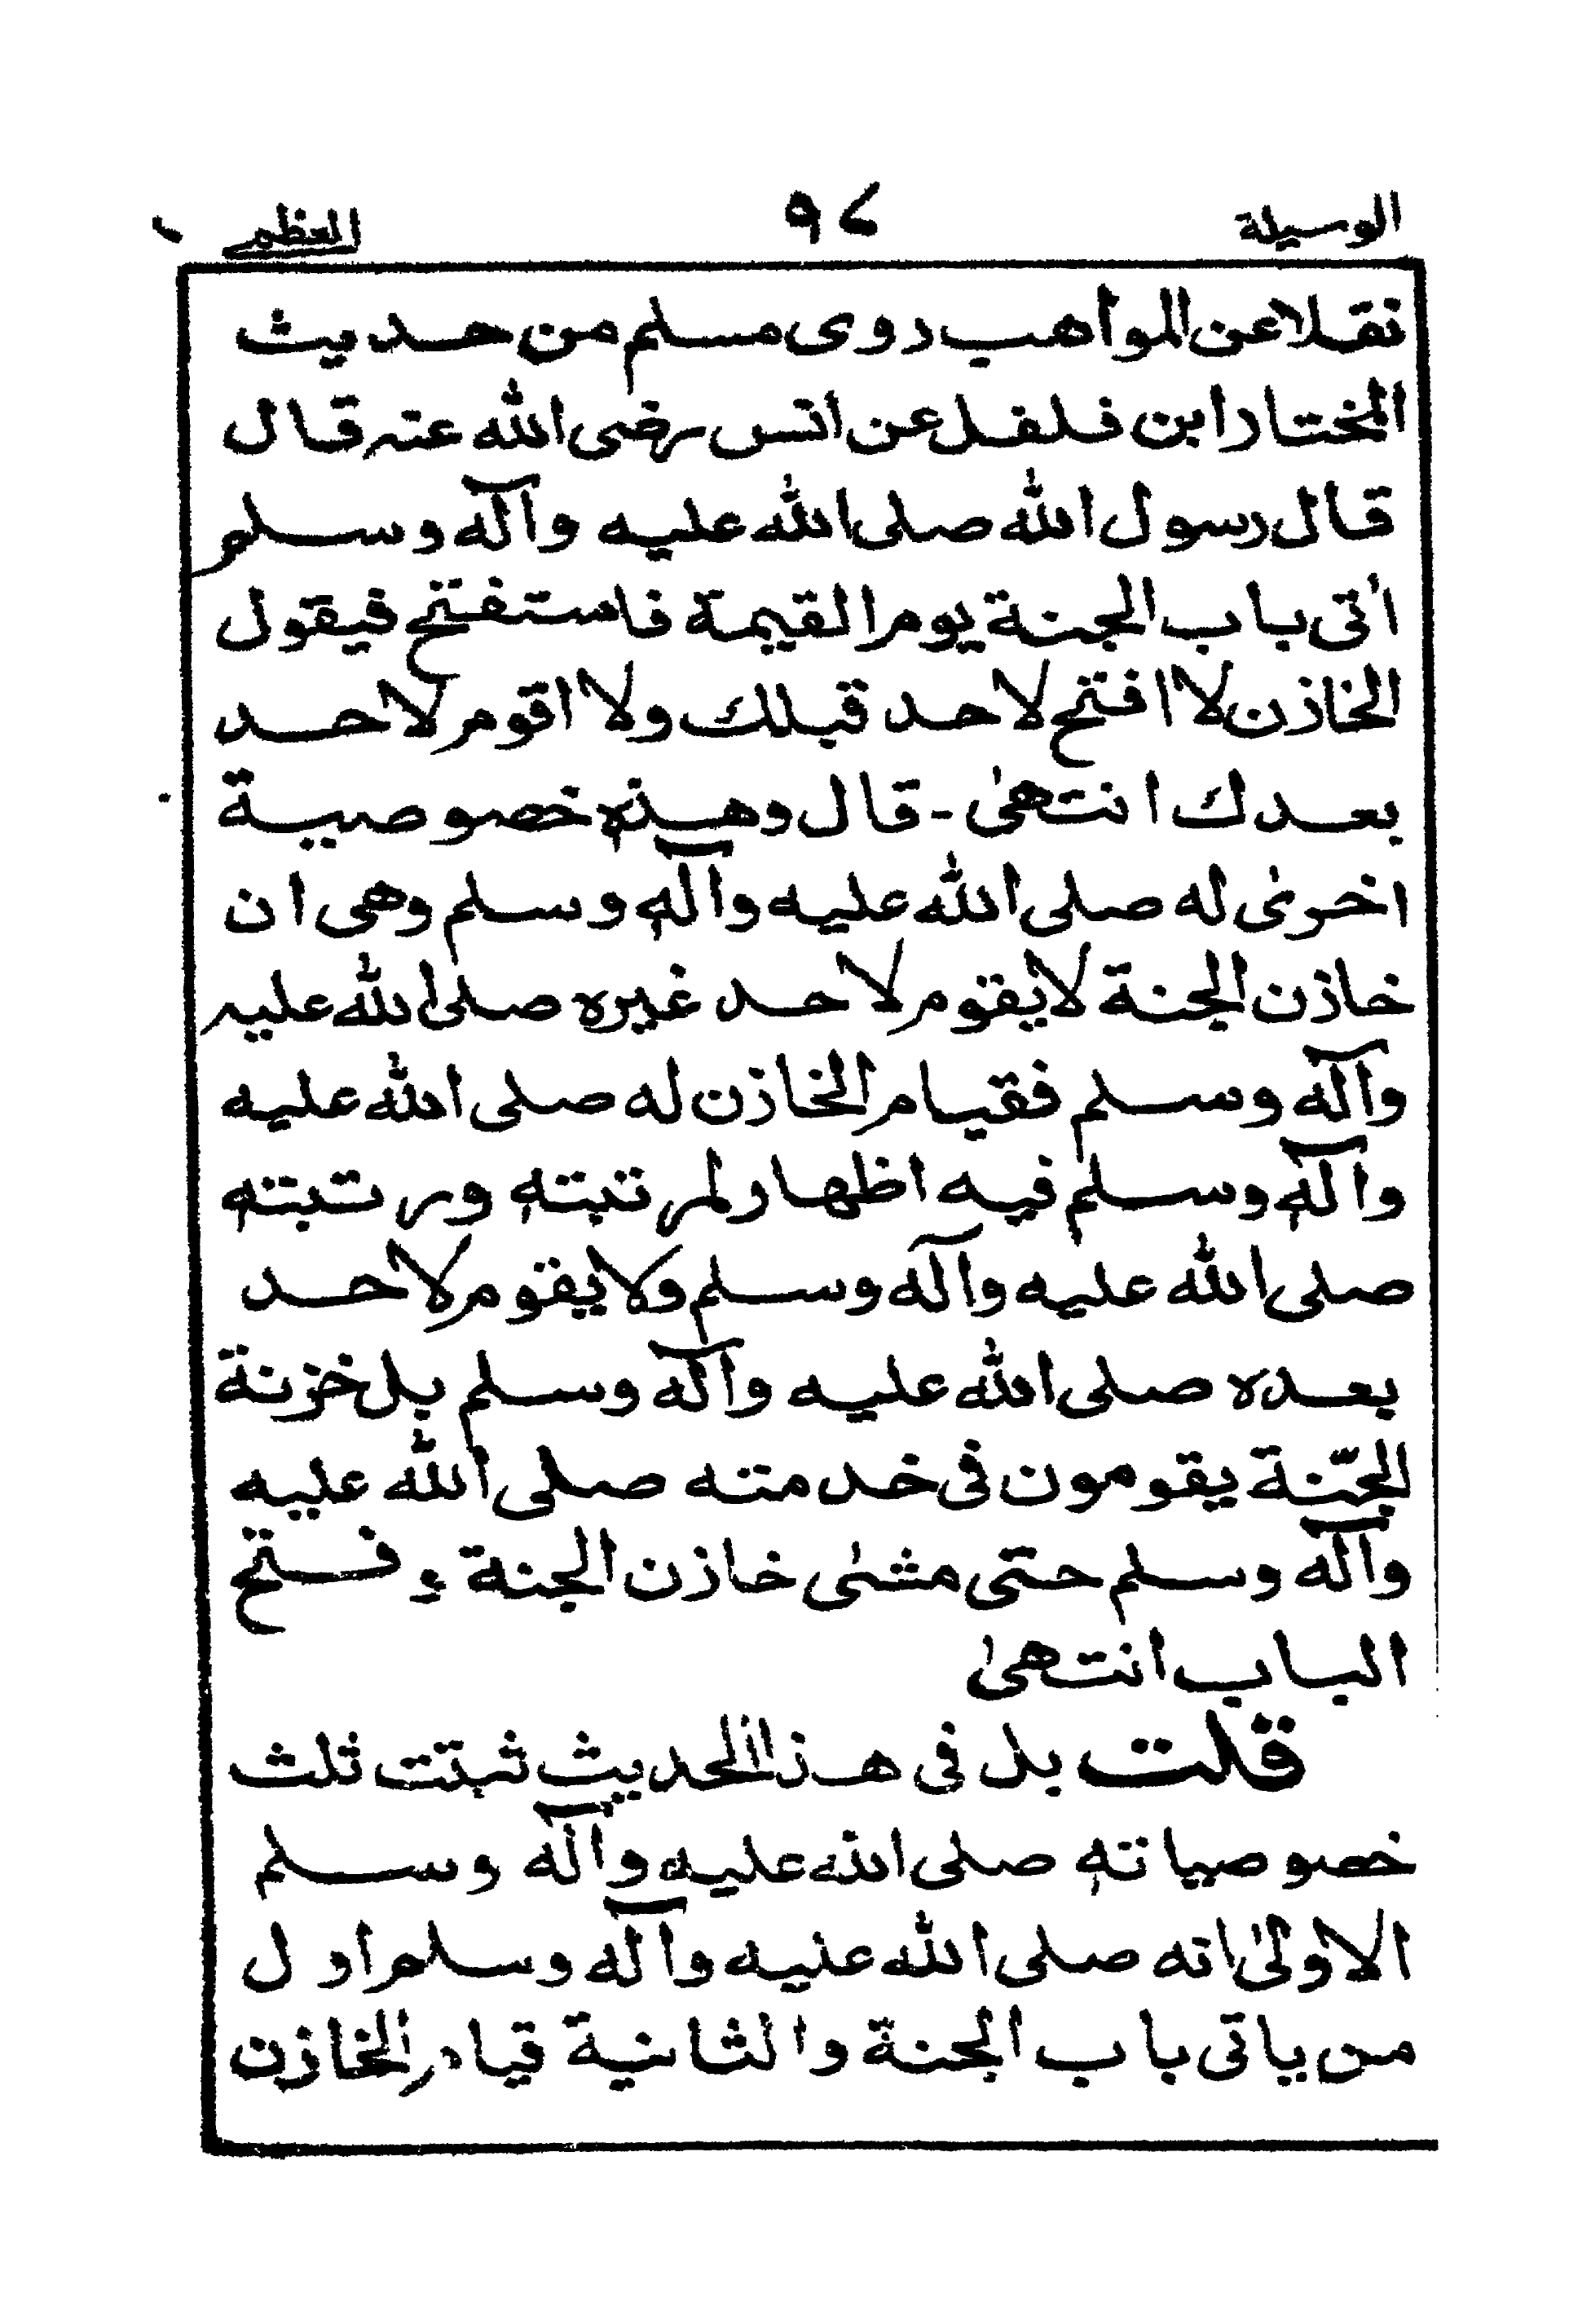 الوسيلة ٩٧ العظمى
نقلا عن المواهب روى مسلم من حديث
المختار ابن فلفل عن انس رضى الله عنه قال
قال رسول الله صلى الله عليه وآله وسلم
أتى باب الجنة يوم القيمة فاستفتح فيقول
الخازن لا افتح لاحد قبلك ولا اقوم لاحد
بعدك انتهىٰ - قال وهذه خصوصية
اخرىٰ له صلى الله عليه وآله وسلم وهى ان
خازن الجنة لا يقوم لاحد غيره صلى الله عليه
وآله وسلم فقيام الخازن له صلى الله عليه
وآله وسلم فيه اظهار لمرتبته ورتبته
صلى الله عليه وآله وسلم ولا يقوم لاحد
بعده صلى الله عليه وآله وسلم بل خزنة
الجنّة يقومون فى خدمته صلى الله عليه
وآله وسلم حتى مشىٰ خازن الجنة وفتح
الباب انتهىٰ
قلت بل فى هذا الحديث ثبتت ثلث
خصوصياته صلى الله عليه وآله وسلم
الاولىٰ انه صلى الله عليه وآله وسلم اول
من ياتى باب الجنة والثانية قيام الخازن